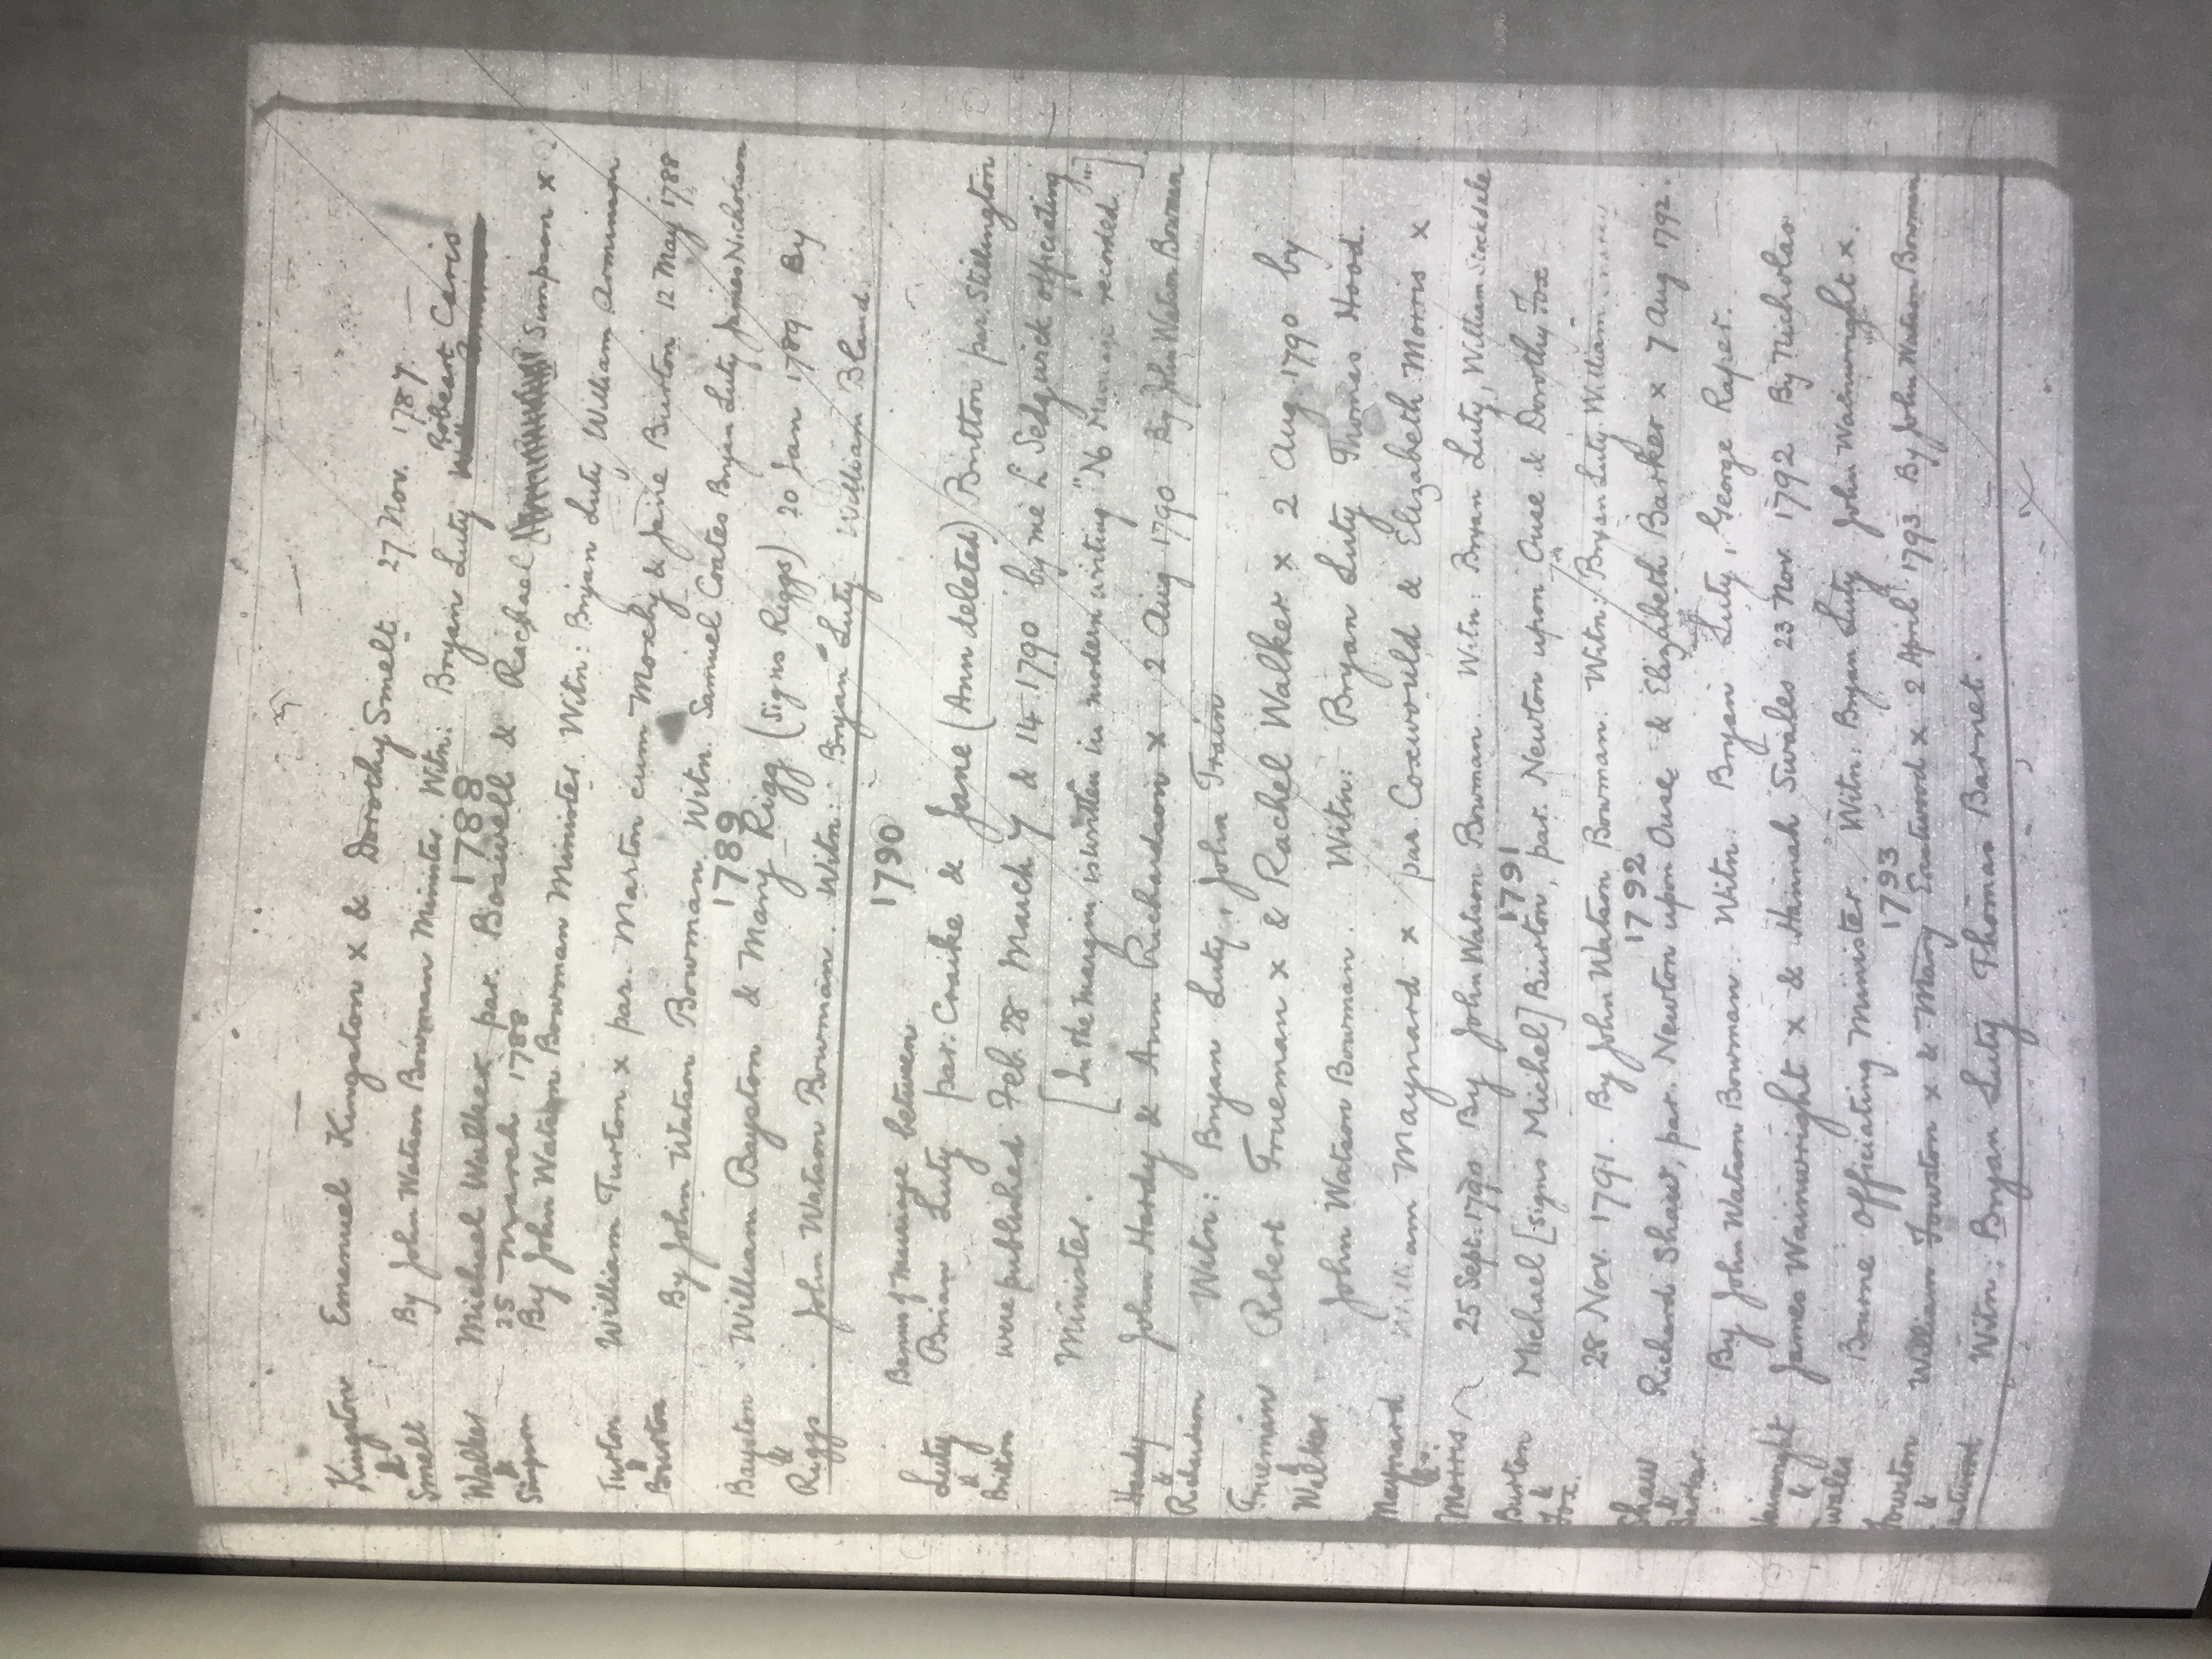 Kingston & Smelt
Emanuel Kingston x & Dorothy Smelt 27 Nov. 1787.
By John Watson Bowman Minister. Witn: Bryan Luty Robeart Caris
1788
Walker & Simpson
Michael Walker par. Boswell & Rachael Simpson x
25 March 1788
By John Watson Bowman Minister. Witn: Bryan Luty William
Turton & Burton
William Turton x par. Marton cum Moxby & Jane Burton 12 May 1788
By John Watson Bowman. Witn. Samuel Coates Bryan Luty James Nicholson
1789
Bayston & Riggs
William Bayston & Mary Rigg (signs Riggs) 20 Jan 1789 By
John Watson Bowman. Witn: Bryan Luty William Bland.
1790
Banns of Marriage between
Luty & Britton
Brian Luty par. Craike & Jane (Ann deleted) Britton par. Stillington
were published Feb. 28 March 7 & 14 1790 by me L Sedgwick officiating
Minister. [In the margin is written in modern writing "No Marriage recorded."]
Hardy & Richardson
John Hardy & Ann Richardson x 2 Aug 1790 By John Watson Bowman
Witn: Bryan Luty, John Train
Trueman & Walker
Robert Trueman x & Rachel Walker x 2 Aug. 1790 by
John Watson Bowman. Witn: Bryan Luty Thomas Hood.
Maynard & Morris
am Maynard x par Coxwould & Elizabeth Morris x
25 Sept. 1790 By John Watson Bowman. Witn: Bryan Luty, William Stockdale
1791
Burton & Fox.
Michael [signs Michel] Burton, par. Newton upon Ouse & Dorothy Fox
28 Nov. 1791. By John Watson Bowman: Witn: Bryan Luty. William
1792
Shaw & Barker
Richard Shaw, par. Newton upon Ouse & Elizabeth Barker x 7 Aug 1792.
By John Watson Bowman. Witn: Bryan Luty, George Raper.
Wainwright & Swales
James Wainwright x & Hannah Swales 23 Nov. 1792 By Nicholas
Bourne Officiating Minister. Witn: Bryan Luty John Wainwright x.
1793
Towrton & Eastwood
William Towrton x & Mary Eastwood x 2 April 1793 By John Watson Bowman
Witn: Bryan Luty Thomas Barnet.